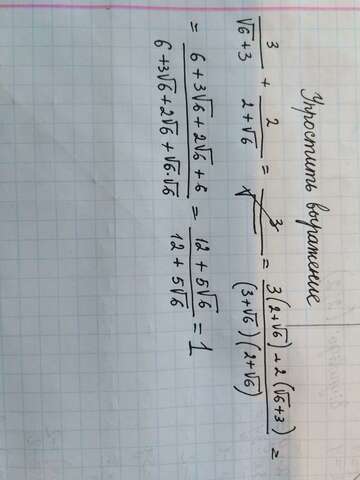 Упростить выражение
3/(√6+3) + 2/(2+√6) = = (3(2+√6)+2(√6+3))/((3+√6)(2+√6)) =
= (6+3√6+2√6+6)/(6+3√6+2√6+√6·√6) = (12+5√6)/(12+5√6) = 1